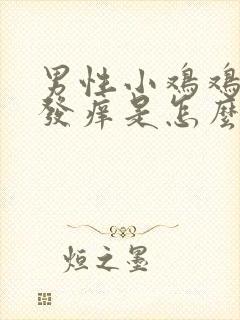 男性小鸡鸡
發痒是怎麼
烜之墨